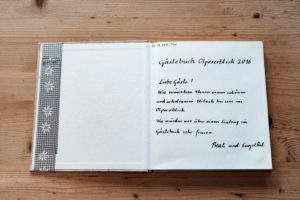 Gästebuch Olpererblick 2016
Liebe Gäste!
Wir wünschen Ihnen einen schönen
und erholsamen Urlaub bei uns im
Olpererblick.
Wir würden uns über einen Eintrag im
Gästebuch sehr freuen.
Beate und